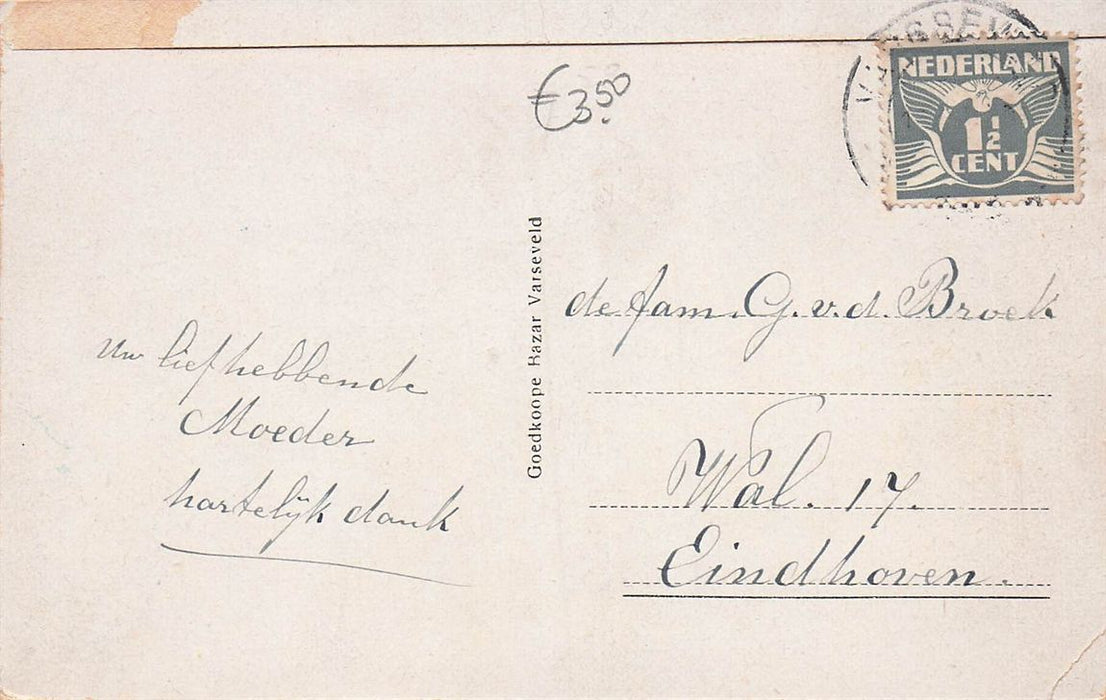 €3.50
NEDERLAND
1½
CENT
Goedkoope Bazar Varseveld
de fam. G. v. d. Broek
Wal. 17.
Eindhoven.
Uw liefhebbende
Moeder
hartelijk dank